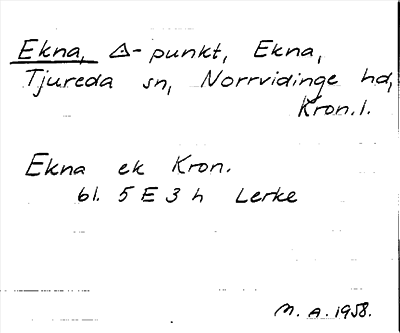 Ekna, △-punkt, Ekna,
Tjureda sn, Norrvidinge hd,
Kron.l.
Ekna ek Kron.
bl. 5 E 3 h Lerke
M. A. 1958.